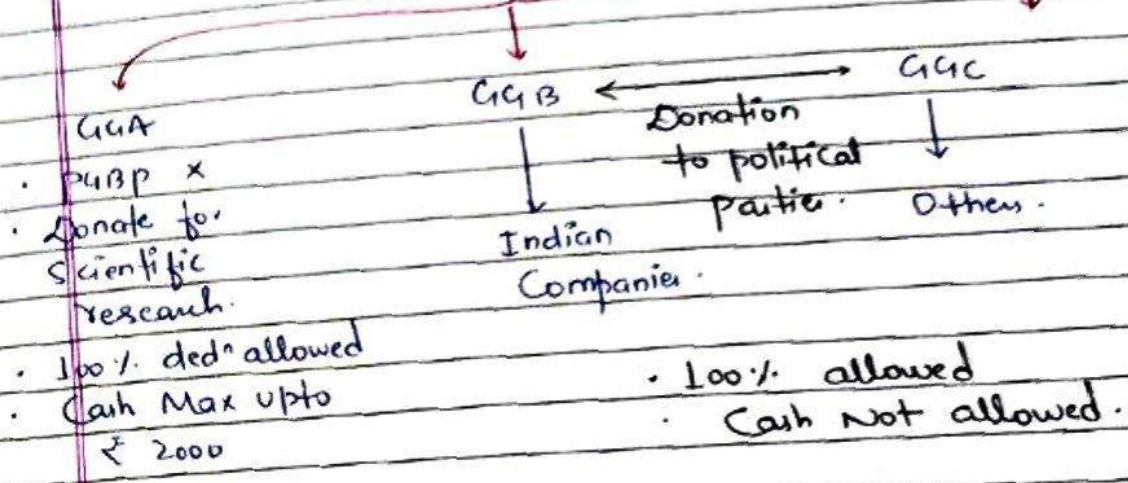 GGA
PGBP ×
Donate for
Scientific
research.
100% dedⁿ allowed
Cash Max upto
₹ 2000
GGB
Indian
Companies.
Donation
to political
parties.
GGC
Others.
100% allowed
Cash Not allowed.